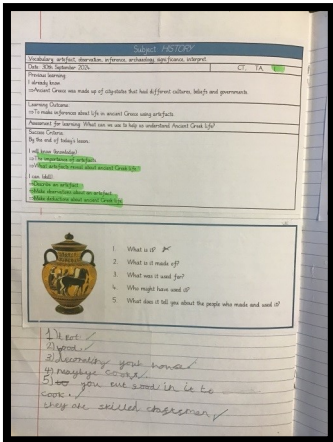 Subject: HISTORY
Vocabulary: artefact, observation, inference, archaeology, significance, interpret
Date: 30th September 2024
CT, TA
Previous learning
I already know:
Ancient Greece was made up of city-states that had different cultures, beliefs and governments.
Learning Outcome
To make inferences about life in ancient Greece using artefacts
Assessment for learning: What can we use to help us understand Ancient Greek life?
Success Criteria
By the end of today's lesson:
I will know (knowledge)
The importance of artefacts
What artefacts reveal about ancient Greek life
I can (skill)
Describe an artefact
Make observations about an artefact
Make deductions about ancient Greek life
1. What is it?
2. What is it made of?
3. What was it used for?
4. Who might have used it?
5. What does it tell you about the people who made and used it?
1) It pot
2)
3) your house
4)
5) you put food in it to
cook.
they are skilled